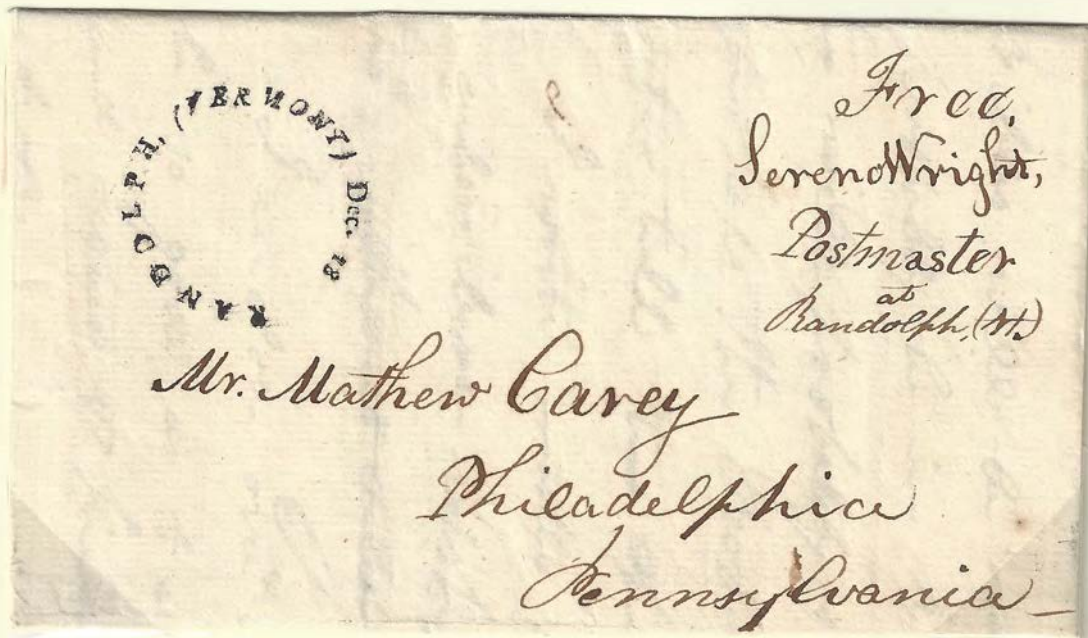 RANDOLPH, (VERMONT) Dec. 18
Free,
Sereno Wright,
Postmaster
at
Randolph, (Vt.)
Mr. Mathew Carey
Philadelphia
Pennsylvania